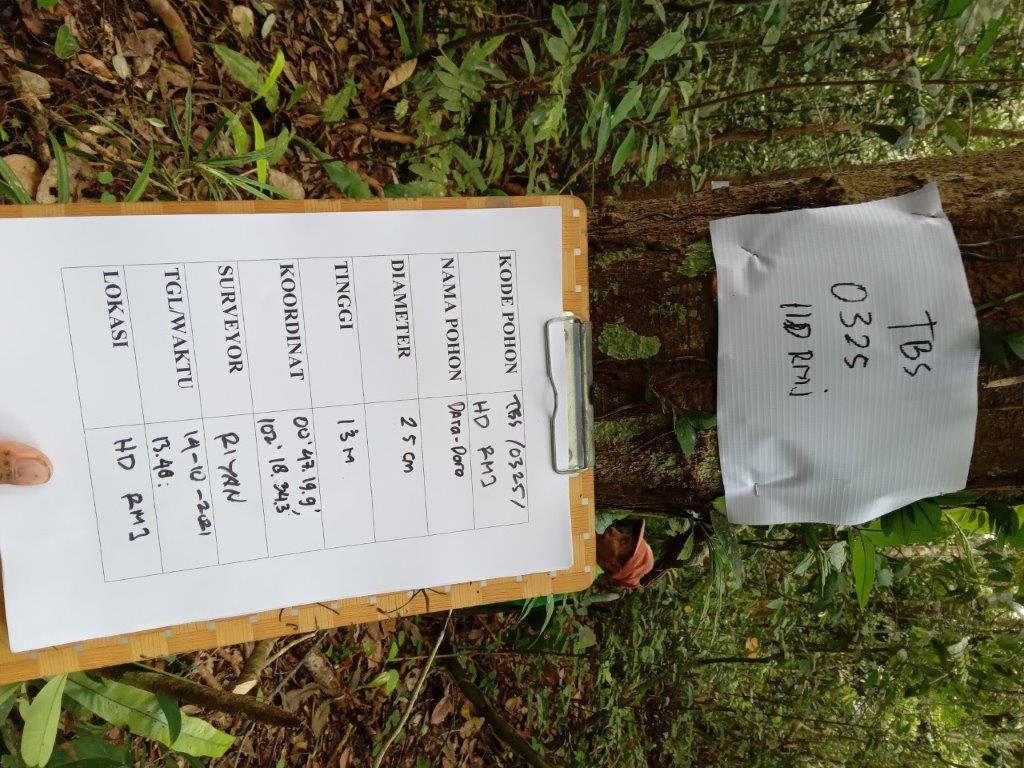 KODE POHON TBS /0325/
HD RMJ
NAMA POHON DARA-DARA
DIAMETER 25 cm
TINGGI 13 M
KOORDINAT 00'.47.19.9',
102'. 18 34,3
SURVEYOR RIYAN
TGL/WAKTU 14-10-2021
13.48.
LOKASI HD RMJ
TBS
0325
HD RMJ